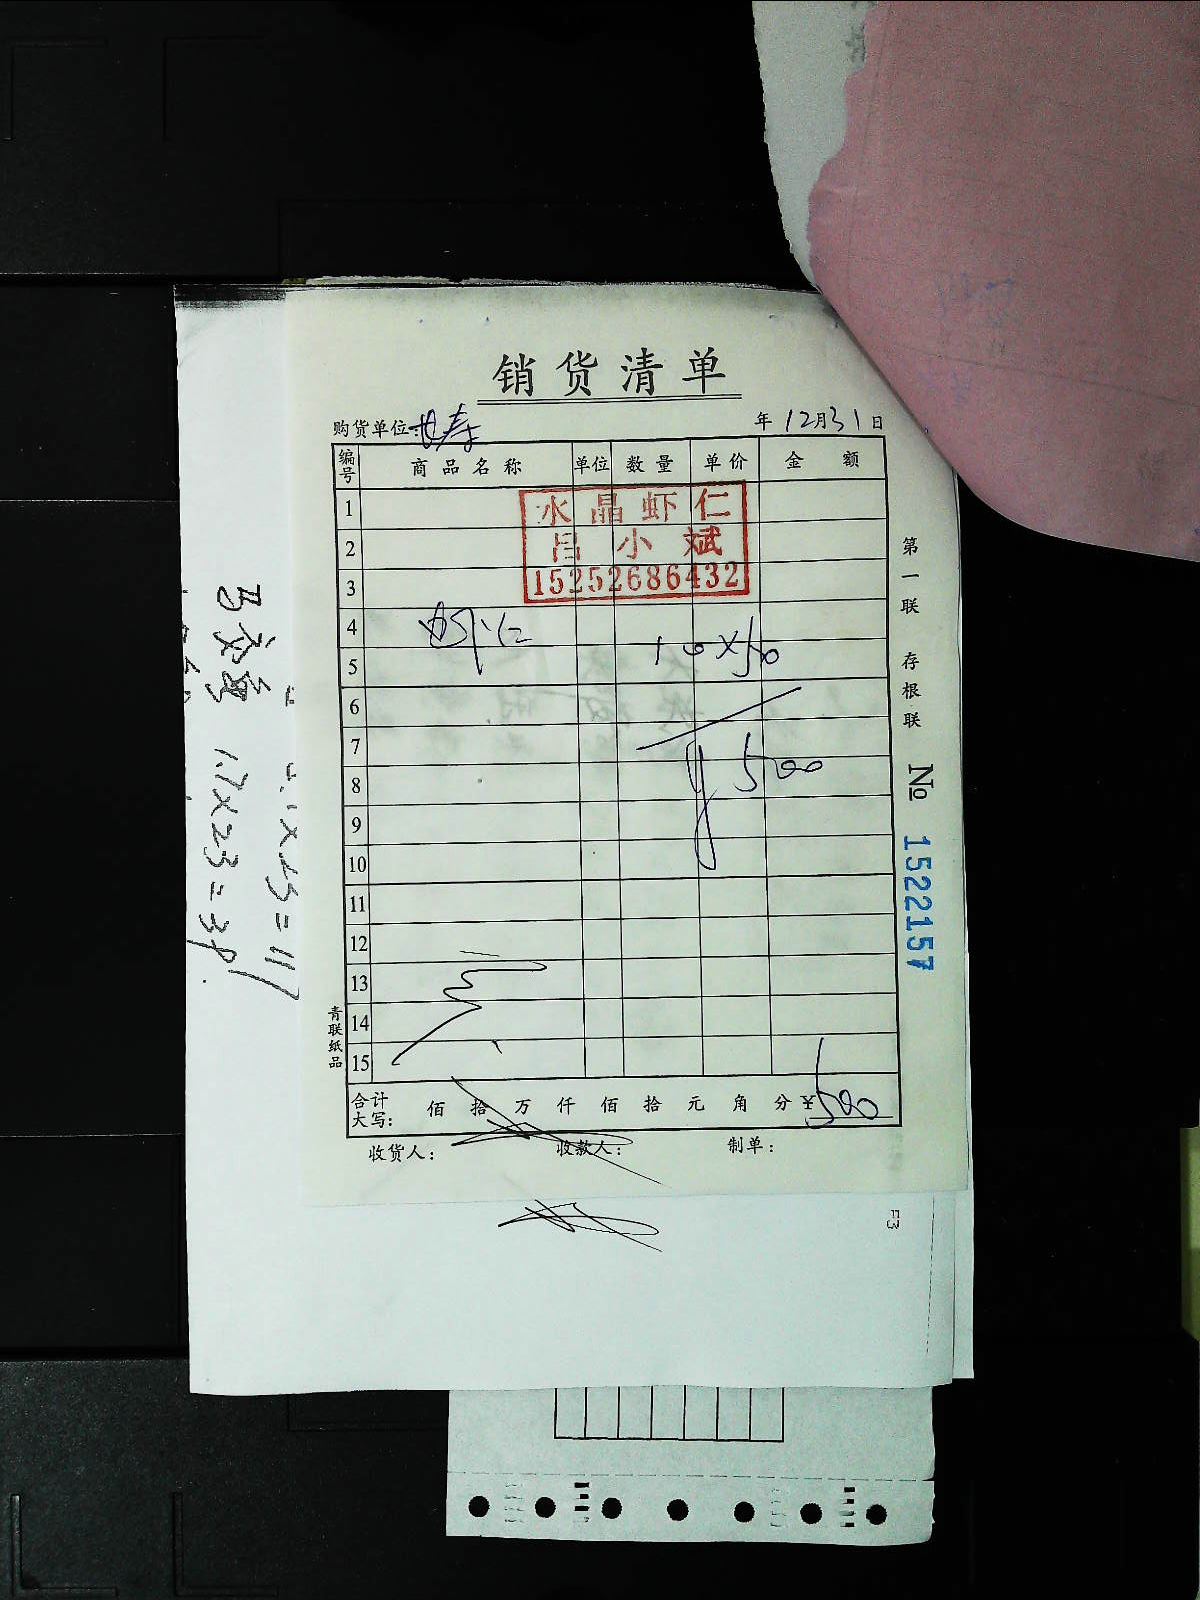 销货清单
购货单位:世寿 年 12月31日
编号 商品名称 单位 数量 单价 金额
1
水晶虾仁
2
吕小斌
3
15252686432
4 虾仁
5 10×50
6
7
8 ¥500
9
10
11
12
13
14
15
合计大写: 佰 拾 万 仟 佰 拾 元 角 分 ¥500
收货人: 收款人: 制单:
第一联 存根联
№ 1522157
青联纸品
1.7×23=39.
F3